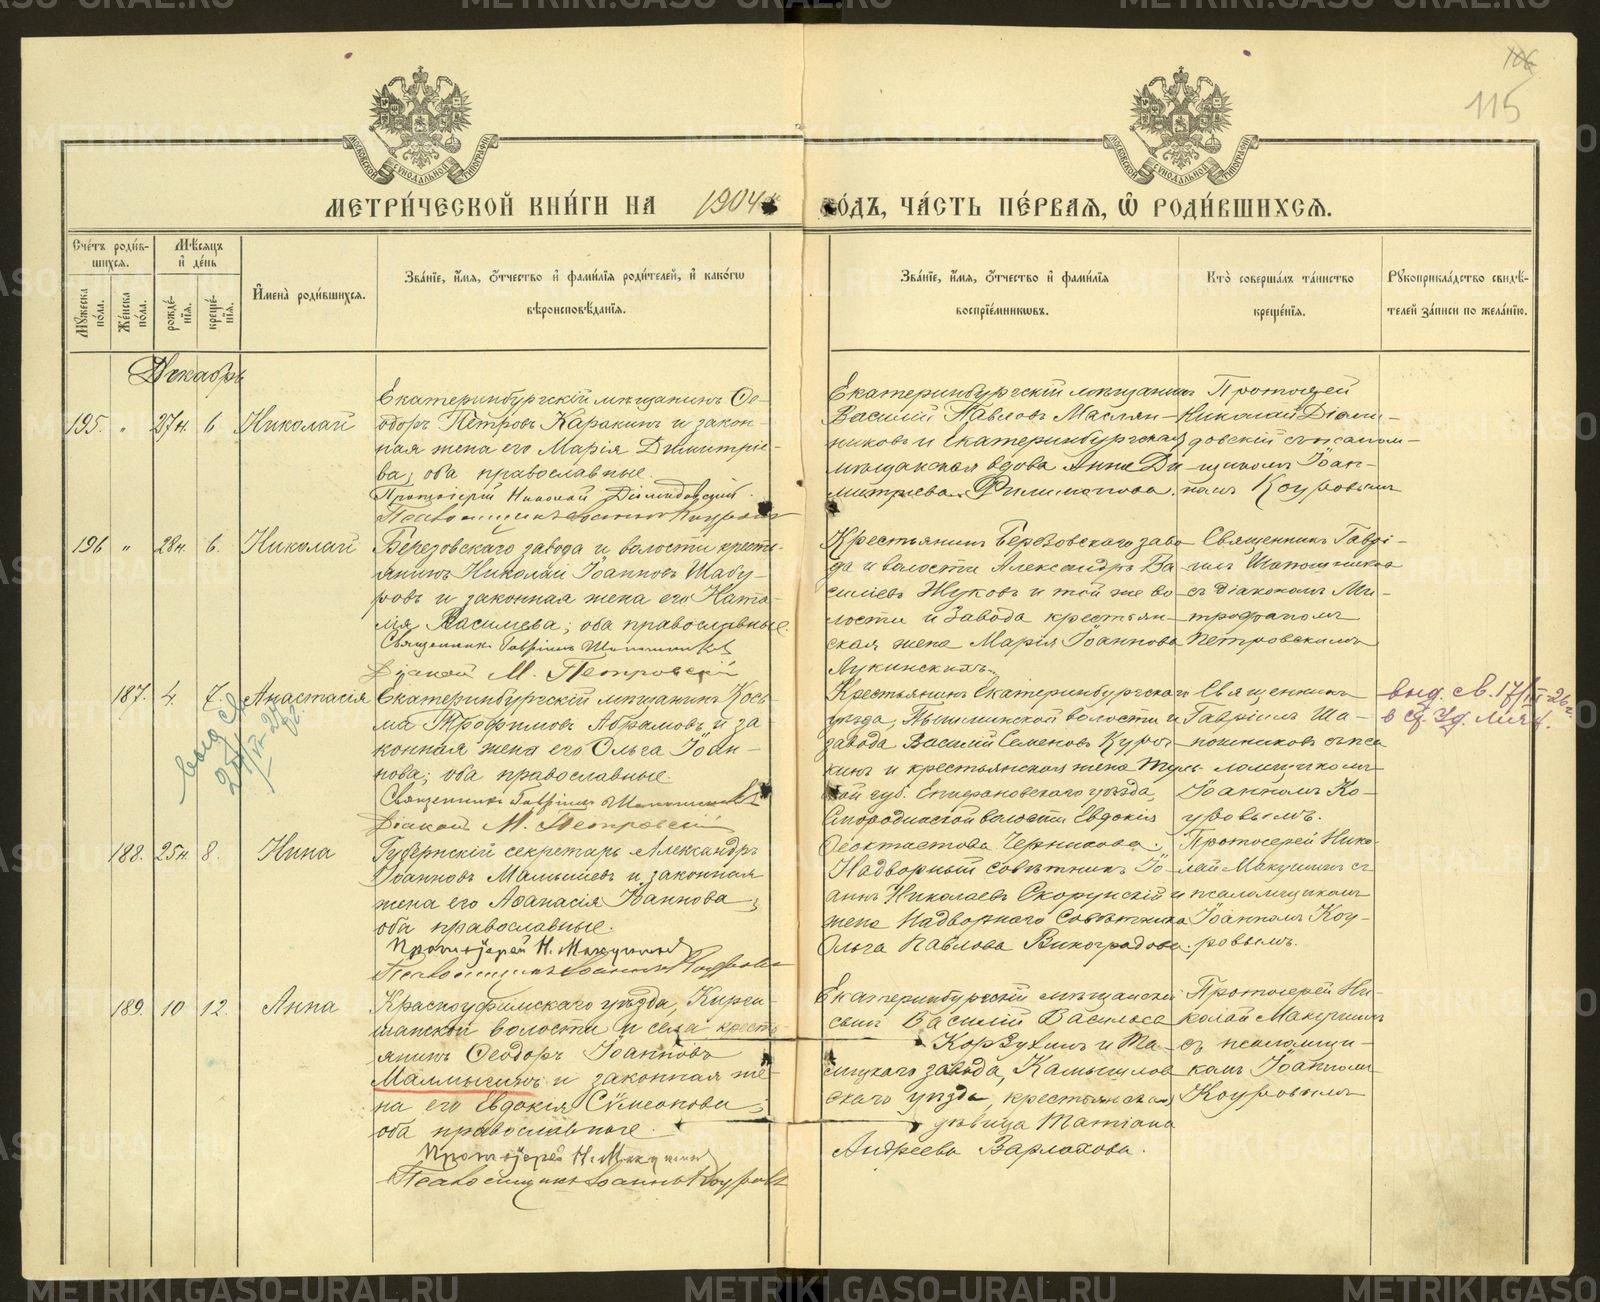 106
115
МЕТРИ́ЧЕСКОЙ КНИ́ГИ НА 1904 ГО́ДЪ, ЧА́СТЬ ПЕ́РВАЯ, Ѡ҆ РОДИ́ВШИХСЯ.
Сче́тъ роди́в-
шихся.
Мѣ́сяцъ
и҆ де́нь
Мꙋ́жеска по́ла.
Же́нска по́ла.
рожде́-
нїя.
креще́-
нїя.
И҆мена̀ роди́вшихся.
Зва́нїе, и҆́мя, ѻ҆́тчество и҆ фами́лїя роди́телей, и҆ како́гѡ
вѣроисповѣ́данїя.
Зва́нїе, и҆́мя, ѻ҆́тчество и҆ фами́лїя
воспрїе́мниковъ.
Кто̀ соверша́лъ та́инство
креще́нїя.
Рꙋкоприкла́дство свидѣ́-
телей за́писи по жела́нїю.
Декабрь
195. " 27 н. 6 Николай
Екатеринбургскій мѣщанинъ Ѳе-
одоръ Петровъ Каракинъ и закон-
ная жена его Марія Димитріе-
ва; оба православные.
Протоіерей Николай Діомидовскій.
Псаломщикъ Іоаннъ Коуровъ
Екатеринбургскій мѣщанинъ
Василій Павловъ Маслян-
никовъ и Екатеринбургская
мѣщанская вдова Анна Ди-
митріева Филимонова.
Протоіерей
Николай Діоми-
довскій съ псалом-
щикомъ Іоан-
номъ Коуровымъ
196 " 28 н. 6. Николай
Березовскаго завода и волости кресть-
янинъ Николай Іоанновъ Шабу-
ровъ и законная жена его Ната-
лія Васильева; оба православные.
Священникъ Гавріилъ Шапошниковъ
Діаконъ М. Петровскій
Крестьянинъ Березовскаго заво-
да и волости Александръ Ва-
сильевъ Жуковъ и той же во-
лости и завода крестьян-
ская жена Марія Іоаннова
Лукинскихъ.
Священникъ Гаврі-
илъ Шапошниковъ
съ діакономъ Ми-
трофаномъ
Петровскимъ
187. 4. 7. Анастасія
Екатеринбургскій мѣщанинъ Кось-
ма Трофимовъ Абрамовъ и за-
конная жена его Ольга Іоан-
нова; оба православные
Священникъ Гавріилъ Шапошниковъ
Діаконъ М. Петровскій
Крестьянинъ Екатеринбургскаго
уѣзда, Пышминской волости и
завода Василій Семеновъ Куроч-
кинъ и крестьянская жена Туль-
ской губ. Епифановскаго уѣзда,
волости Евдокія
Ѳеоктистова Черникова.
Священникъ
Гавріилъ Ша-
пошниковъ съ пса-
ломщикомъ
Іоанномъ Ко-
уровымъ.
выд. св. 17/III-26 г.
188. 25 н. 8. Нина
Губернскій секретарь Александръ
Іоанновъ Малышевъ и законная
жена его Аѳанасія Іоаннова;
оба православные.
Протоіерей Н. Макушинъ
Псаломщикъ Іоаннъ Коуровъ
Надворный совѣтникъ Іо-
аннъ Николаевъ Скорунскій и
жена Надворнаго Совѣтника
Ольга Павлова Виноградова.
Протоіерей Нико-
лай Макушинъ съ
псаломщикомъ
Іоанномъ Коу-
ровымъ.
189. 10 12. Анна
Красноуфимскаго уѣзда, Кирги-
шанской волости и села кресть-
янинъ Ѳеодоръ Іоанновъ
Малмыгинъ и законная же-
на его Евдокія Сѵмеонова;
оба православные.
Протоіерей Н. Макушинъ
Псаломщикъ Іоаннъ Коуровъ
Екатеринбургскій мѣщанскій
сынъ Василій Васильевъ
Корзухинъ и
завода, Камышлов-
скаго уѣзда, крестьянская
дѣвица Татіана
Андреева Варлакова.
Протоіерей Ни-
колай Макушинъ
съ псаломщи-
комъ Іоанномъ
Коуровымъ
METRIKI.GASO-URAL.RU